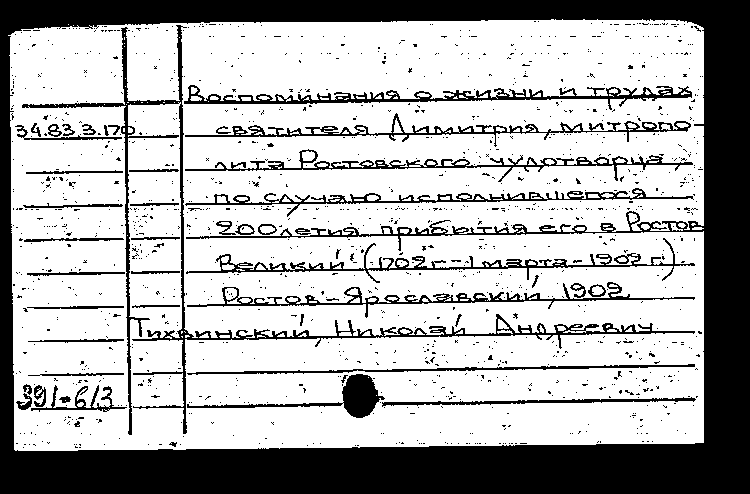 Воспоминания о жизни и трудах
34.83.3.170. святителя Димитрия, митропо-
лита Ростовского чудотворца,
по случаю исполнившегося
200летия прибытия его в Ростов
Великий (1702 г.-1 марта-1902 г.)
Ростов-Ярославский, 1902.
Тихвинский, Николай Андреевич
391-613